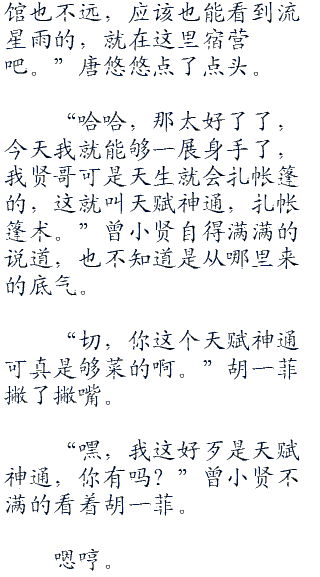 馆也不远，应该也能看到流
星雨的，就在这里宿营
吧。”唐悠悠点了点头。
“哈哈，那太好了了，
今天我就能够一展身手了，
我贤哥可是天生就会扎帐篷
的，这就叫天赋神通，扎帐
篷术。”曾小贤自得满满的
说道，也不知道是从哪里来
的底气。
“切，你这个天赋神通
可真是够菜的啊。”胡一菲
撇了撇嘴。
“嘿，我这好歹是天赋
神通，你有吗？”曾小贤不
满的看着胡一菲。
嗯哼。